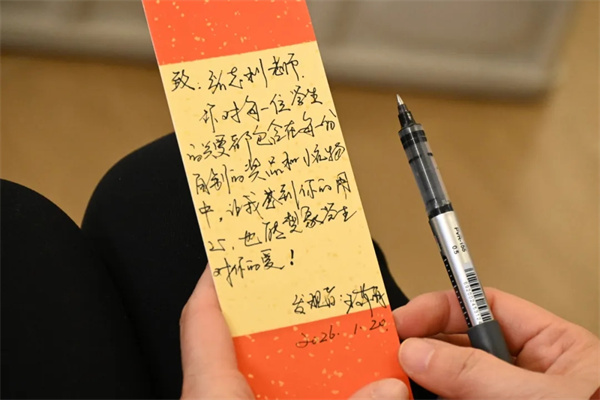 致：张志利老师
你对每一位学生
的爱都包含在每一份
自制的奖品和小礼物
中，让我感到你的用
心，也能想象学生
对你的爱！
发现者：
2026.1.20
PVR-155
0.5